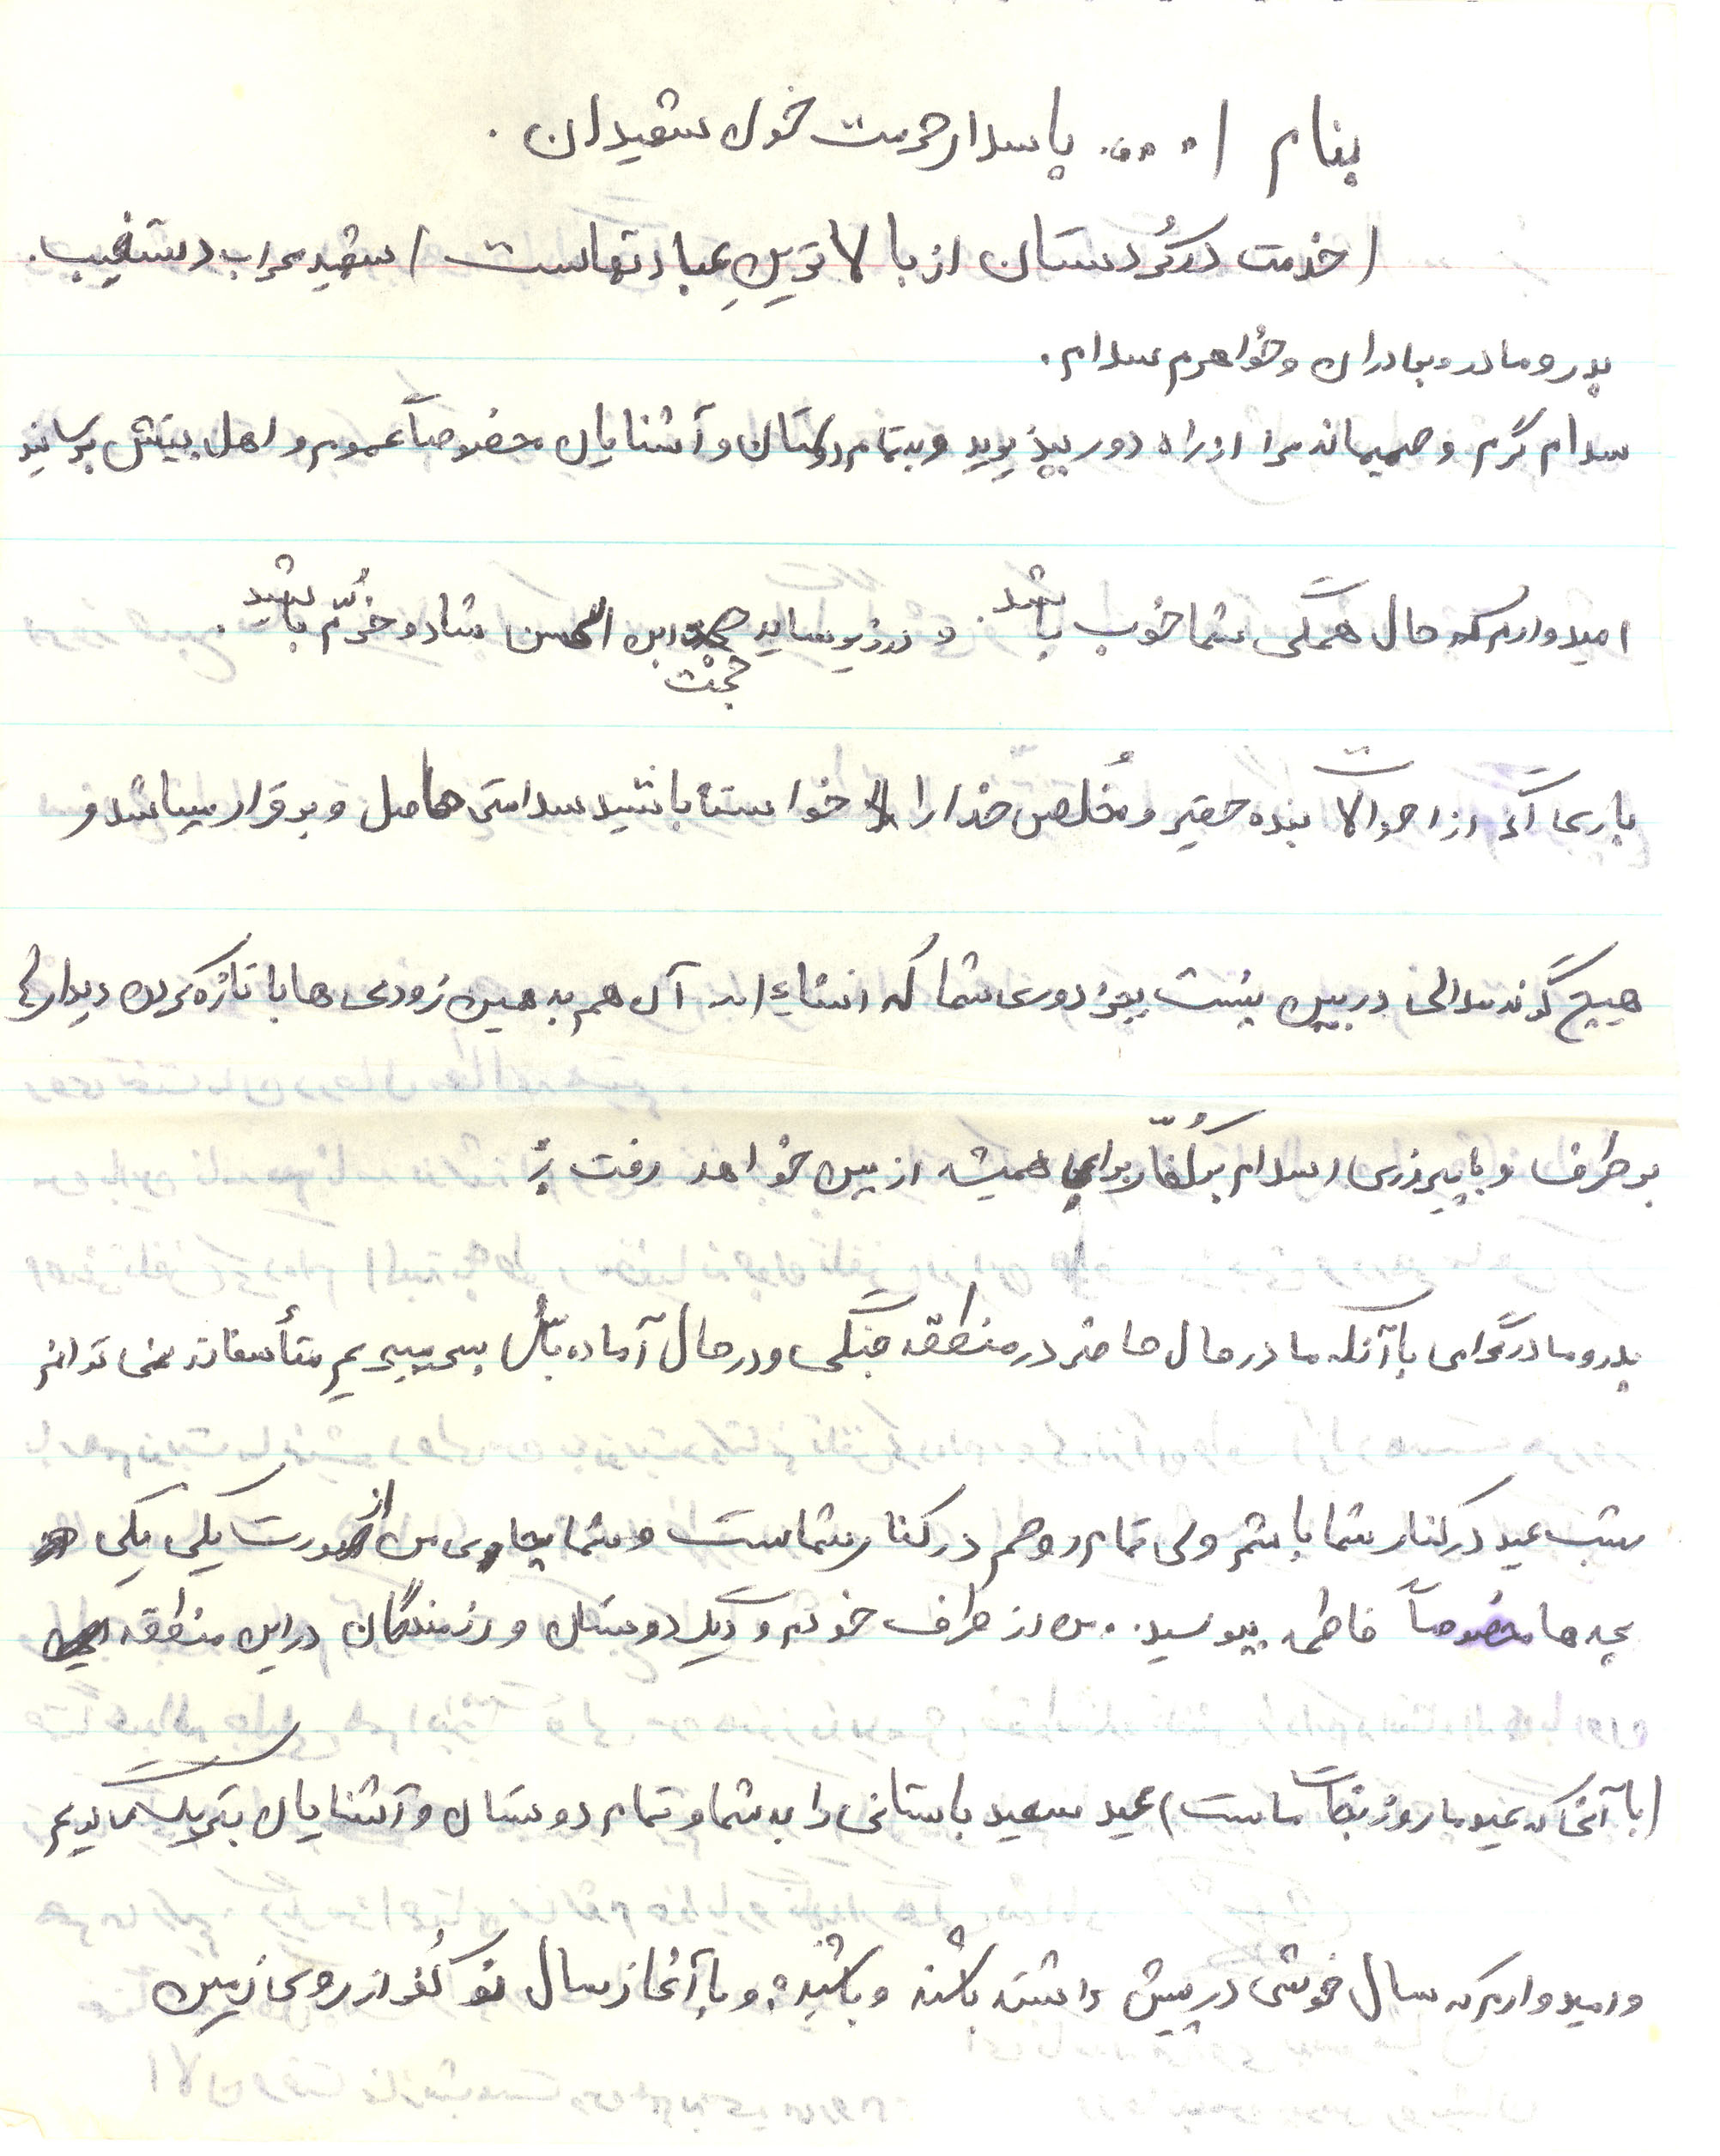 بنام ا... پاسدار حرمت خون شهیدان.
(خدمت در کُردستان از بالاترینِ عبادتهاست) شهید محراب دستغیب.
پدر و مادر و برادران و خواهرم سلام.
سلام گرم و صمیمانه مرا از راه دور بپذیرید و به تمام دوستان و آشنایان مخصوصاً عمویم و اهل بیتش برسانید
امیدوارم که حال همگی شما خوب باشد. و در زیر سایه حجت ابن الحسن شاد و خُرّم باشید.
باری اگر از احوالات بنده حقیر و مُخلص خدا را خواسته باشید سلامتی حاصل و برقرار میباشد و
هیچ گونه ملالی در بین نیست بجز دوری شما که انشاءا... آن هم به همین زودی ها با تازه کردن دیدارها
برطرف و با پیروزی اسلام بر کُفّار برای همیشه از بین خواهد رفت
پدر و مادر گرامی با آنکه ما در حال حاضر در منطقه جنگی و در حال آماده باش بسر میبریم متأسفانه نمی توانم
شب عید در کنار شما باشم ولی تمام روحم در کنار شماست و شما بجای من از صورت یکی یکی
بچه ها مخصوصاً فاطمه ببوسید. من از طرف خودم و دیگر دوستان و رزمندگان در این منطقه
(با آنجا که عید ما روز نجات ماست) عید سعید باستانی را به شما و تمام دوستان و آشنایان تبریک میگویم
و امیدوارم که سال خوشی در پیش داشته باشند و باشید و با آغاز سال نو کُفر از روی زمین